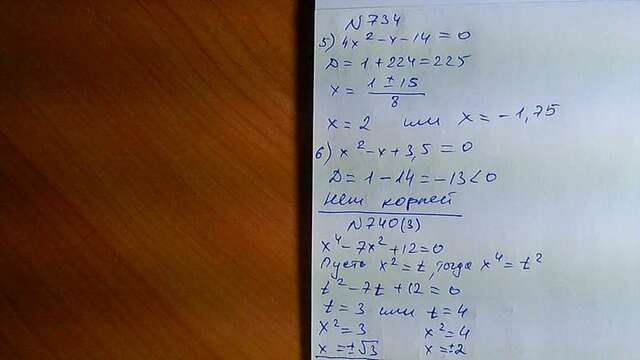 N734
5) 4x² - x - 14 = 0
D = 1 + 224 = 225
x = (1 ± 15) / 8
x = 2 или x = -1,75
6) x² - x + 3,5 = 0
D = 1 - 14 = -13 < 0
Нет корней
N740(3)
x⁴ - 7x² + 12 = 0
Пусть x² = t, тогда x⁴ = t²
t² - 7t + 12 = 0
t = 3 или t = 4
x² = 3 x² = 4
x = ±√3 x = ±2